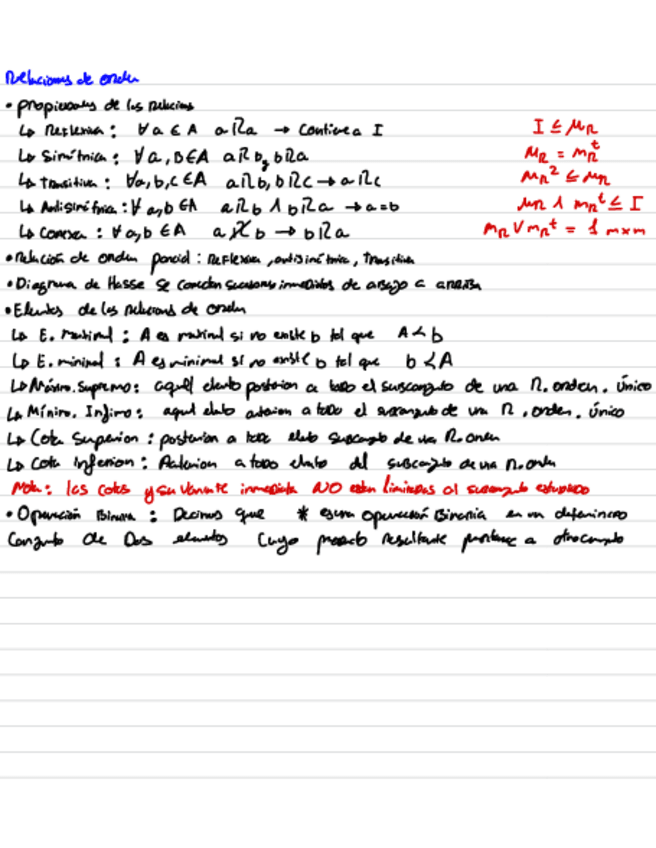 Relaciones de orden
• propiedades de las relacions
↳ Reflexiva : ∀ a ∈ A a R a → Contiene a I I ≤ M_R
↳ Simétrica : ∀ a, b ∈ A a R b, b R a M_R = M_R^t
↳ transitiva : ∀a,b,c ∈ A a R b, b R c → a R c M_R^2 ≤ M_R
↳ Antisimétrica : ∀ a,b ∈ A a R b ∧ b R a → a=b M_R ∧ M_R^t ≤ I
↳ Conexa : ∀ a,b ∈ A a R̸ b → b R a M_R ∨ M_R^t = 1 m×m
• Relación de orden parcial : Reflexiva, antisimétrica, transitiva
• Diagrama de Hasse se conectan sucesores inmediatos de abajo a arriba
• Elementos de las relaciones de orden
↳ E. maximal : A es maximal si no existe b tal que A < b
↳ E. minimal : A es minimal si no existe b tal que b < A
↳ Máximo. Supremo : aquel elemento posterior a todo el subconjunto de una R. orden. único
↳ Mínimo. Infimo : aquel elemento anterior a todo el subconjunto de una R. orden. único
↳ Cota Superior : posterior a todo elemento subconjunto de una R. orden
↳ Cota Inferior : Anterior a todo elemento del subconjunto de una R. orden
Nota : las cotas y su variante inmediata NO estan limitadas al subconjunto estudiado
• Operación Binaria : Decimos que * es una operación Binaria en un determinado
Conjunto de Dos elementos Cuyo producto resultante pertenece a otro conjunto